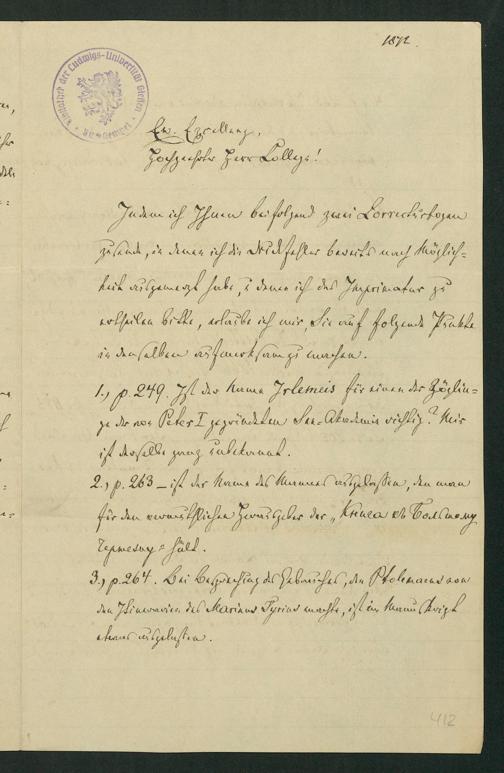 1872.
Bibliothek der Ludwigs-Universität Gießen
Ew. Excellenz,
Hochgeehrter Herr College!
Indem ich Ihnen beifolgend zwei Correcturbogen
zusende, in denen ich die Druckfehler bereits nach Möglich-
keit ausgemerzt habe, u denen ich das Imprimatur zu
ertheilen bitte, erlaube ich mir, Sie auf folgende Punkte
in denselben aufmerksam zu machen.
1., p. 249. Ist der Name Islemeis für einen der Zöglin-
ge der von Peter I gegründeten See-Akademie richtig? Mir
ist derselbe ganz unbekannt.
2., p. 263 – ist der Name des Mannes ausgelassen, den man
für den vermuthlichen Herausgeber der „Книга въ Большому
Чертежу" hält.
3., p. 264. Bei Besprechung des Gebrauches, den Ptolemaeus von
den Itinerarien des Marinus Tyrius machte, ist im Manuskript
etwas ausgelassen.
412